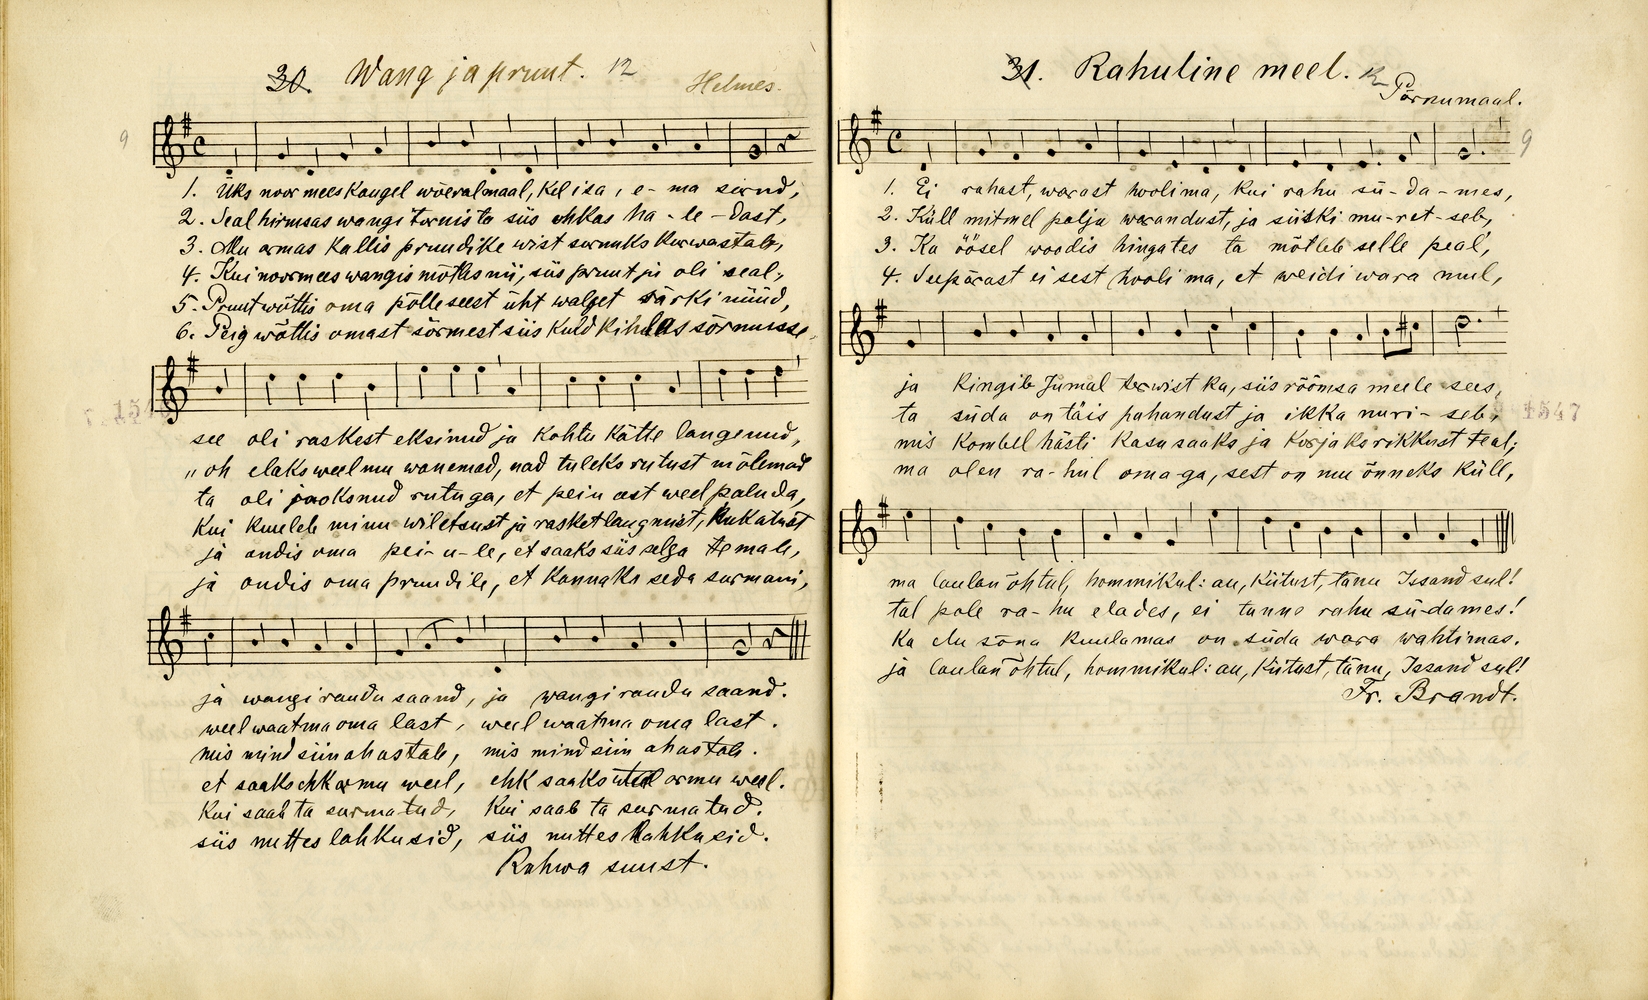 30. Wang ja pruut. 12
Helmes.
9
1. Üks noor mees kaugel wõeral maal, kel isa, e-ma surnd,
2. Seal hirmsas wangi tornis ta siis ohkas ha-le-dast,
3. Mu armas kallis pruudike wist surnuks kurwastab,
4. Kui noormees wangis mõtles nii, siis pruut ju oli seal,
5. Pruut wõttis oma põlle seest üht walget särki nüüd,
6. Peig wõttis omast sõrmest siis kuld kihlas sõrmusse
see oli raskest eksinud ja kohtu kätte langenud,
„oh elaks weel mu wanemad, nad tuleks rutust mõlemad
ta oli jooksnud rutuga, et peiu eest weel paluda,
kui kuuleb minu wiletsust ja rasket langmist, hukatust
ja andis oma pei-u-le, et saaks siis selga temale,
ja andis oma pruudile, et kannaks seda surmani,
ja wangi raudu saand, ja wangi raudu saand.
weel waatma oma last, weel waatma oma last.
mis mind siin ahastab, mis mind siin ahastab.
et saaks ehk armu weel, ehk saaks armu weel.
Kui saab ta surmatud, Kui saab ta surmatud.
siis nuttes lahkusid, siis nuttes lahkusid.
Rahwa suust.
31. Rahuline meel. 12
Pärnumaal.
9
1. Ei rahast, warast hoolima, kui rahu sü-da-mes,
2. Küll mitmel palju warandust, ja siiski nu-ret-seb,
3. Ka öösel woodis hingates ta mõtleb selle peal,
4. Seepärast ei sest hooli ma, et weidi wara mul,
ja kingib Jumal terwist ka, siis rõõmsa meele sees,
ta süda on täis pahandust ja ikka nuri-seb,
mis kombel hästi kasu saaks ja korjaks rikkust teal;
ma olen ra-hul oma-ga, sest on mu õnneks küll,
1547
ma laulan õhtul, hommikul: au, kiitust, tänu Issand sul!
tal pole ra-hu elades, ei tunne rahu sü-dames!
ka Su sõna kuulamas on süda wara wahtimas.
ja laulan õhtul, hommikul: au, kiitust, tänu, Issand sul!
Fr. Brandt.